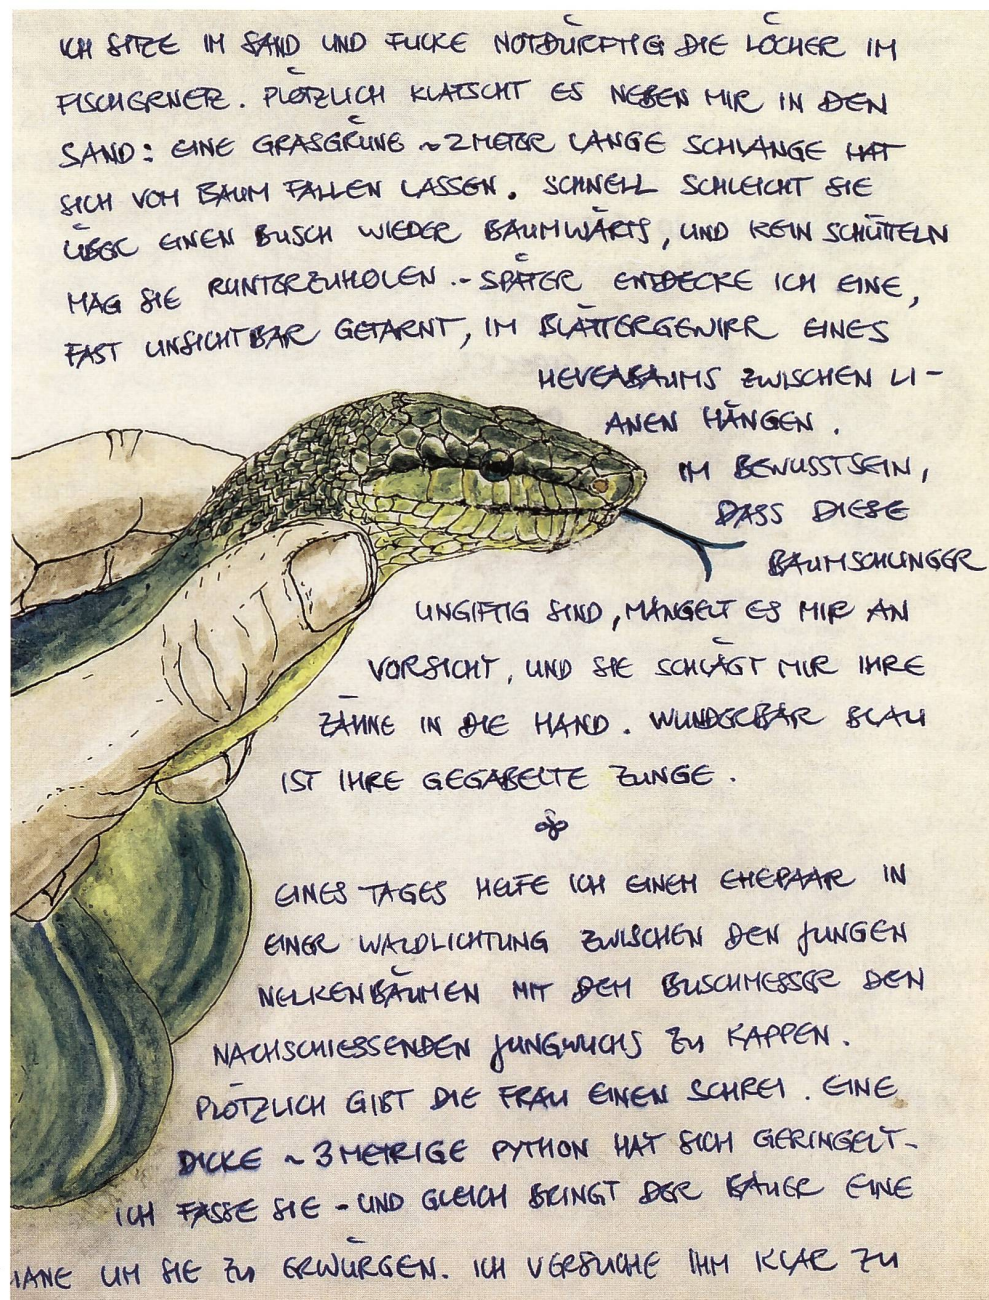 ICH SITZE IM SAND UND FLICKE NOTDÜRFTIG DIE LÖCHER IM
FISCHERNETZ. PLÖTZLICH KLATSCHT ES NEBEN MIR IN DEN
SAND: EINE GRASGRÜNE ~2METER LANGE SCHLANGE HAT
SICH VOM BAUM FALLEN LASSEN. SCHNELL SCHLEICHT SIE
ÜBER EINEN BUSCH WIEDER BAUMWÄRTS, UND KEIN SCHÜTTELN
MAG SIE RUNTERZUHOLEN.- SPÄTER ENTDECKE ICH EINE,
FAST UNSICHTBAR GETARNT, IM BLÄTTERGEWIRR EINES
HEVEABAUMS ZWISCHEN LI-
ANEN HÄNGEN.
IM BEWUSSTSEIN,
DASS DIESE
BAUMSCHLINGER
UNGIFTIG SIND, MANGELT ES MIR AN
VORSICHT, UND SIE SCHLÄGT MIR IHRE
ZÄHNE IN DIE HAND. WUNDERBAR BLAU
IST IHRE GEGABELTE ZUNGE.
EINES TAGES HELFE ICH EINEM EHEPAAR IN
EINER WALDLICHTUNG ZWISCHEN DEN JUNGEN
NELKENBÄUMEN MIT DEM BUSCHMESSER DEN
NACHSCHIESSENDEN JUNGWUCHS ZU KAPPEN.
PLÖTZLICH GIBT DIE FRAU EINEN SCHREI. EINE
DICKE ~3METRIGE PYTHON HAT SICH GERINGELT-
ICH FASSE SIE - UND GLEICH BRINGT DER BAUER EINE
IANE UM SIE ZU ERWÜRGEN. ICH VERSUCHE IHM KLAR ZU